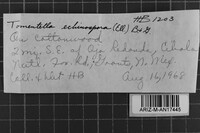 HB 1203
Tomentella echinospora (Ell) B&G
On Cottonwood
2 mi. S.E. of Ojo Redondo, Cibola
Natl. For. Rd, Grants, N. Mex.
Coll. & Det HB Aug 16, 1968
ARIZ-M-AN17445